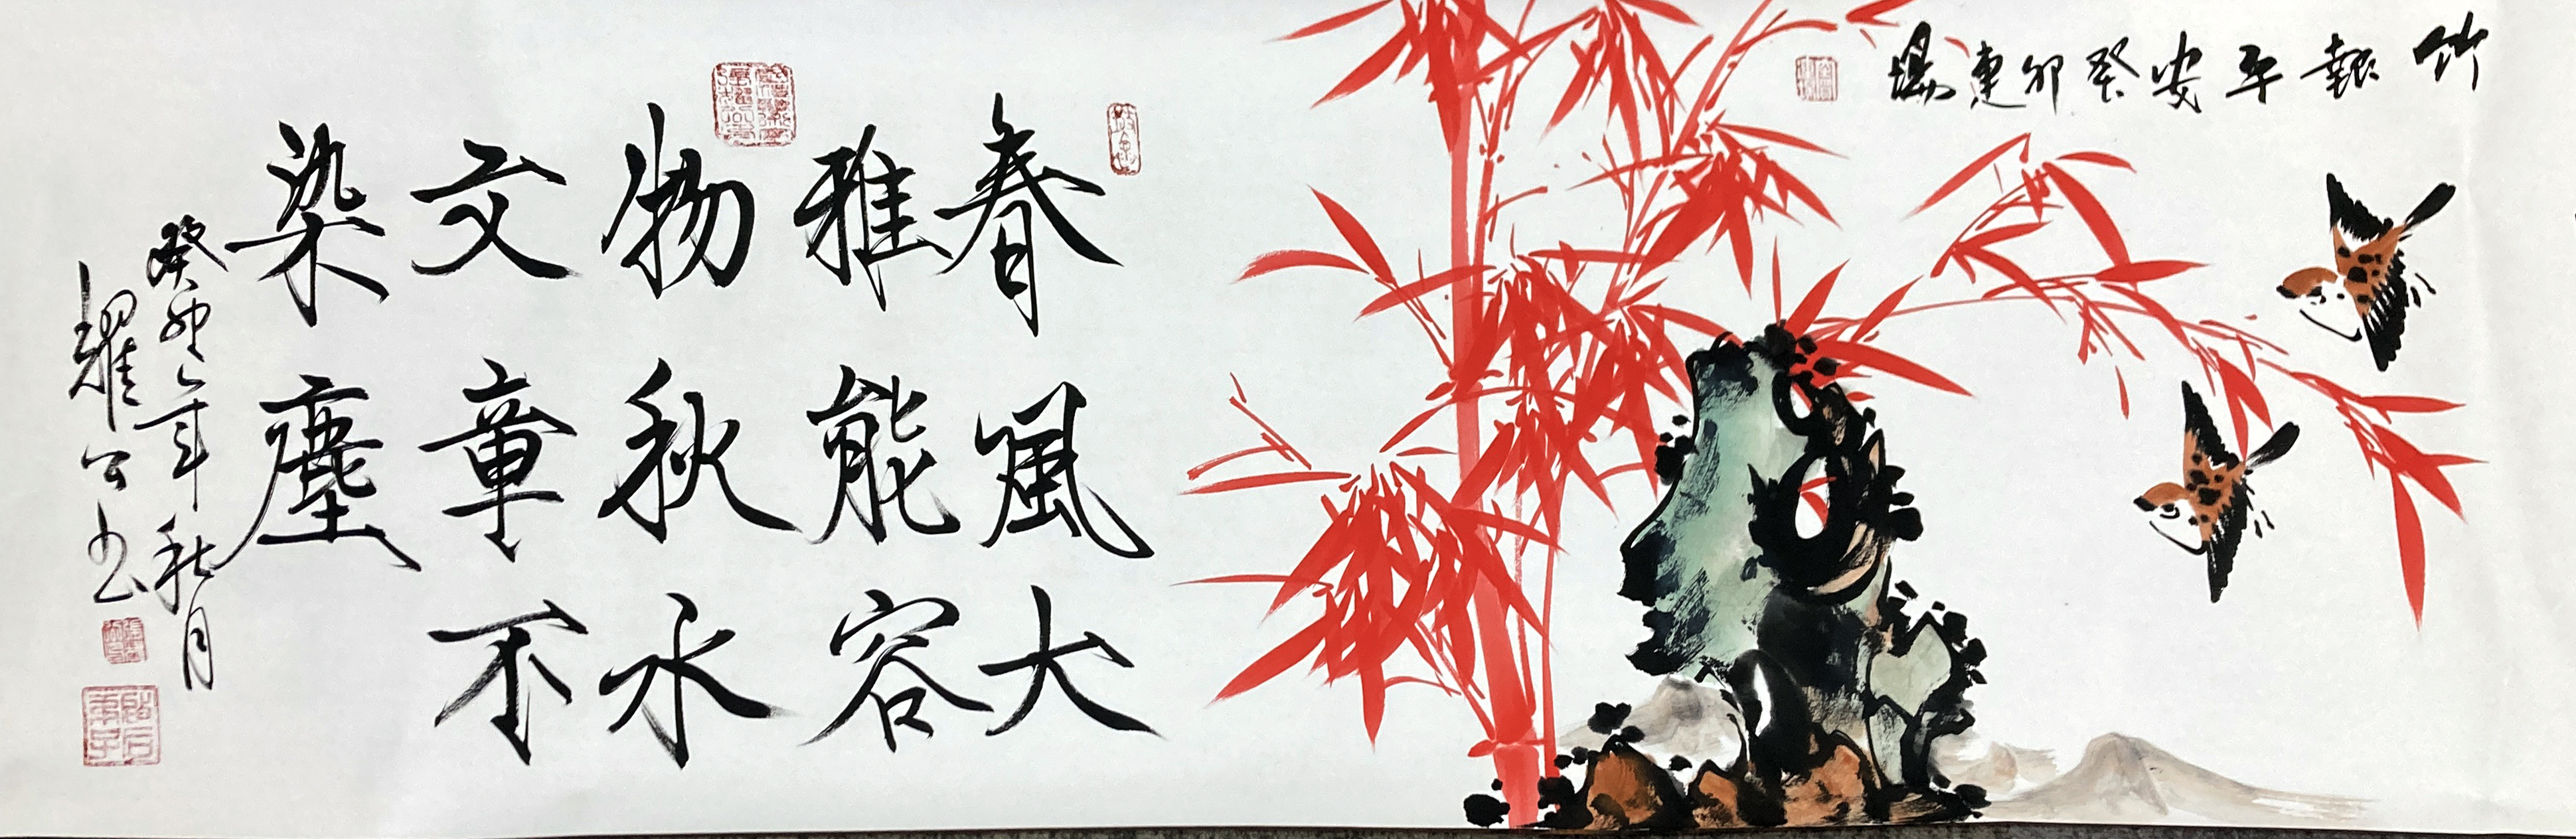 竹報平安癸卯建陽
春風大
雅能容
物秋水
文章不
染塵
癸卯年秋月
耀公书